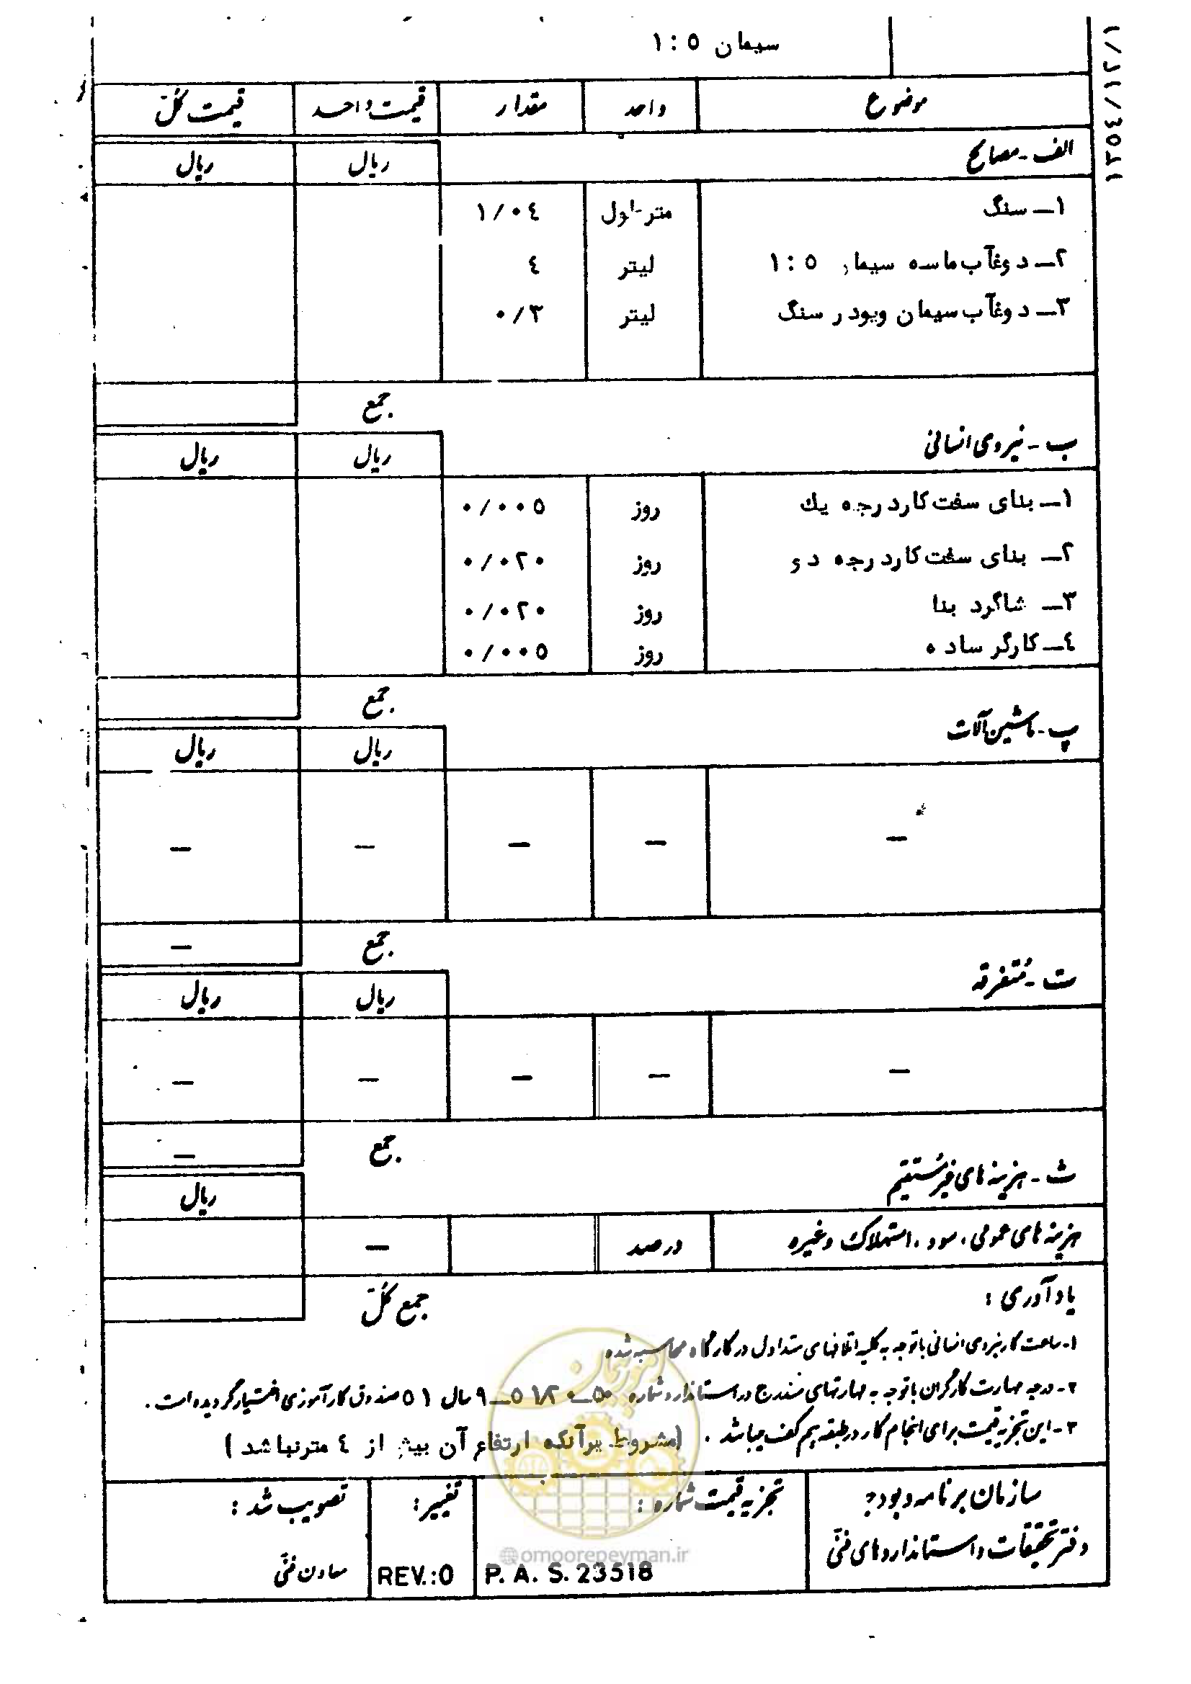 سیمان ۵ : ۱
۱۳۵٤/۱۲/۱
موضوع واحد مقدار قیمت واحد قیمت کل
الف - مصالح ریال ریال
۱- سنگ متر طول ۱/۰٤
۲- دوغآب ماسه سیمان ۵ : ۱ لیتر ٤
۳- دوغآب سیمان وپودر سنگ لیتر ۰/۳
جمع
ب - نیروی انسانی ریال ریال
۱- بنای سفت کار درجه یك روز ۰/۰۰۵
۲- بنای سفت کار درجه دو روز ۰/۰۲۰
۳- شاگرد بنا روز ۰/۰۲۰
٤- کارگر ساده روز ۰/۰۰۵
جمع
پ - ماشین آلات ریال ریال
— — — — —
جمع —
ت - متفرقه ریال ریال
— — — — —
جمع —
ث - هزینه های غیرمستقیم ریال
هزینه های عمومی ، سود ، استهلاک وغیره درصد —
جمع کل
یادآوری :
۱- ساعت کار نیروی انسانی باتوجه به کلیه اتلافهای متداول در کارگاه محاسبه شده
۲- درجه مهارت کارگران باتوجه به مهارتهای مندرج در استاندارد شماره سال ۵۱ صندوق کارآموزی اختیار گردیده است .
۳- این تجزیه قیمت برای انجام کار در طبقه هم کف میباشد . (مشروط برآنکه ارتفاع آن بیش از ٤ مترنباشد )
سازمان برنامه و بودجه
دفتر تحقیقات و استانداردهای فنی
تجزیه قیمت شماره :
P. A. S. 23518
تغییر :
REV.:0
تصویب شد :
معاون فنی
امور پیمان
@omoorepeyman.ir